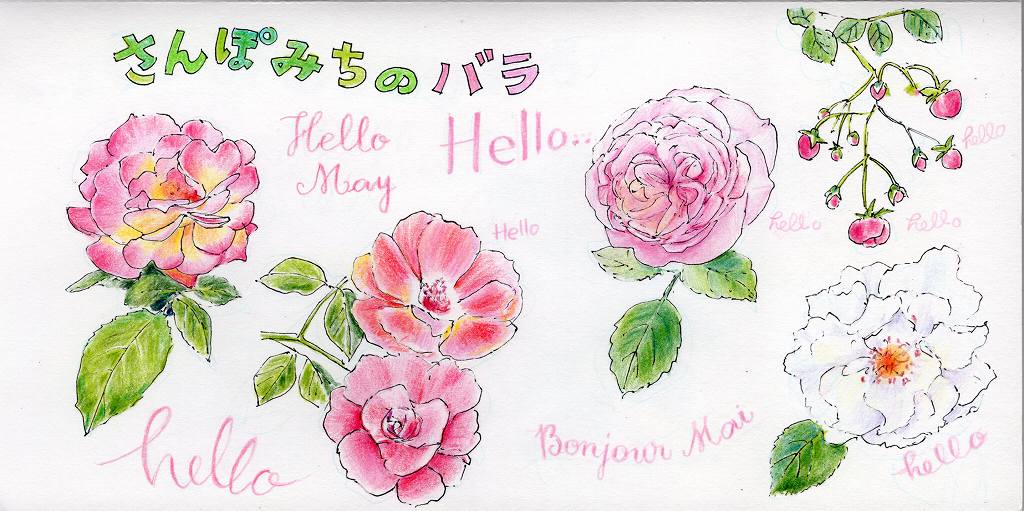 さんぽみちのバラ
Hello
May
Hello...
Hello
hello
hello
hello
hello
Bonjour Mai
hello